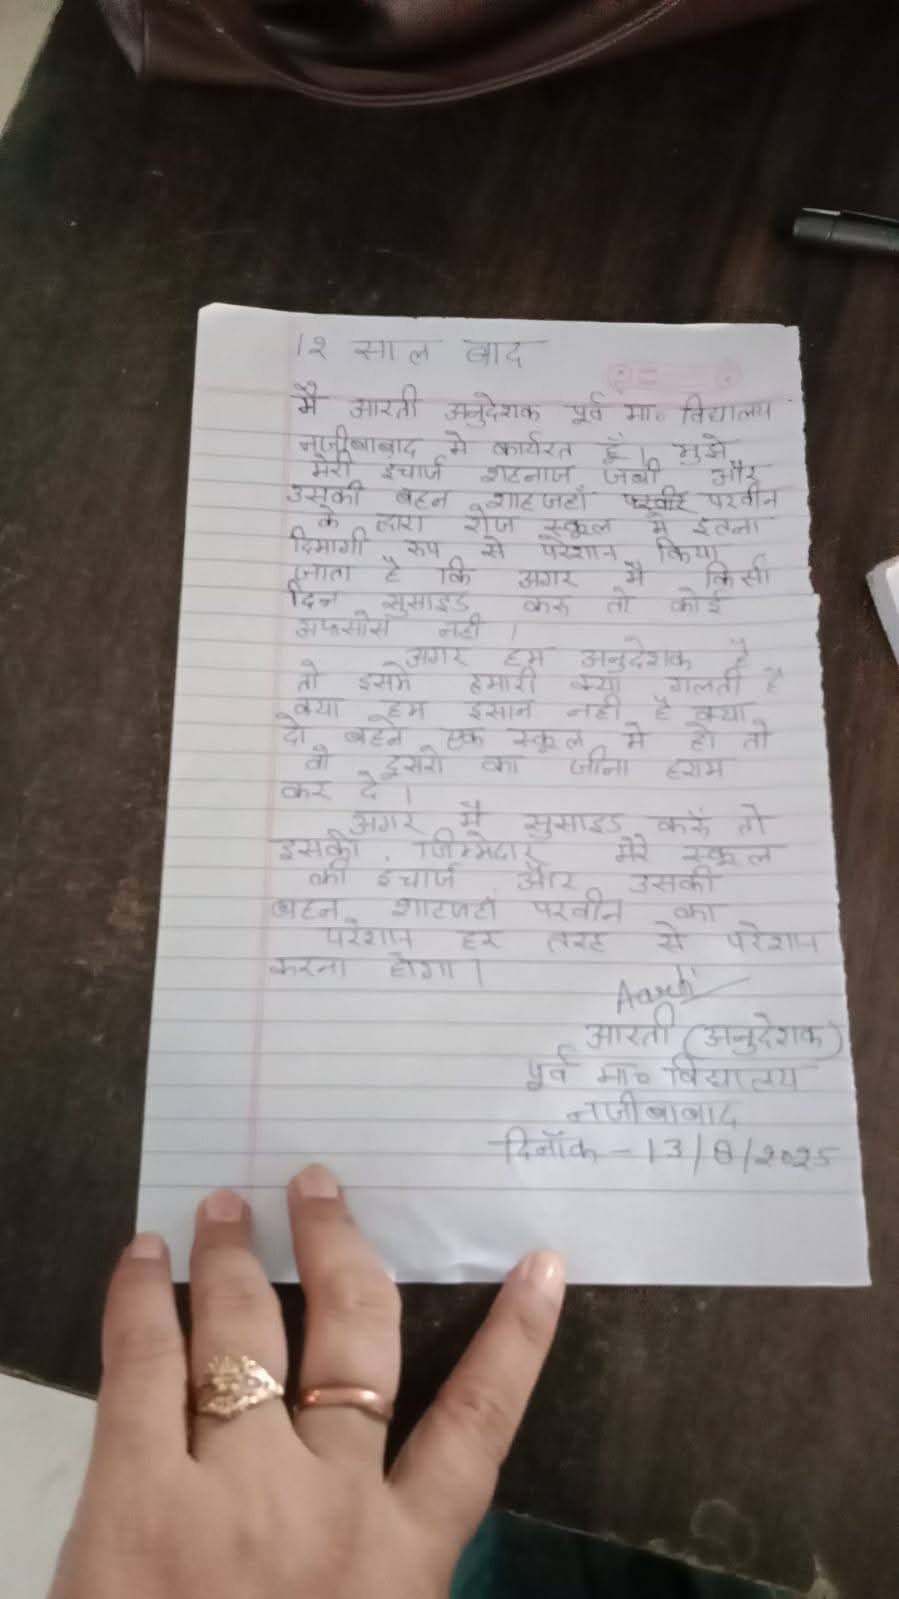 12 साल बाद
मै आरती अनुदेशक पूर्व मा० विद्यालय
नजीबाबाद मे कार्यरत हूँ। मुझे
मेरी इंचार्ज शहनाज जबी और
उसकी बहन शाहजहाँ परवीन
के द्वारा रोज स्कूल मे इतना
दिमागी रुप से परेशान किया
जाता है कि अगर मै किसी
दिन सुसाइड करु तो कोई
अफसोस नही।
अगर हम अनुदेशक है
तो इसमे हमारी क्या गलती है
क्या हम इंसान नही है क्या
दो बहने एक स्कूल मे हो तो
वो दूसरो का जीना हराम
कर दे।
अगर मै सुसाइड करुँ तो
इसकी जिम्मेदार मेरे स्कूल
की इंचार्ज और उसकी
बहन शाहजहाँ परवीन का
परेशान हर तरह से परेशान
करना होगा।
Aarti
आरती (अनुदेशक)
पूर्व मा० विद्यालय
नजीबाबाद
दिनॉक - 13/8/2025